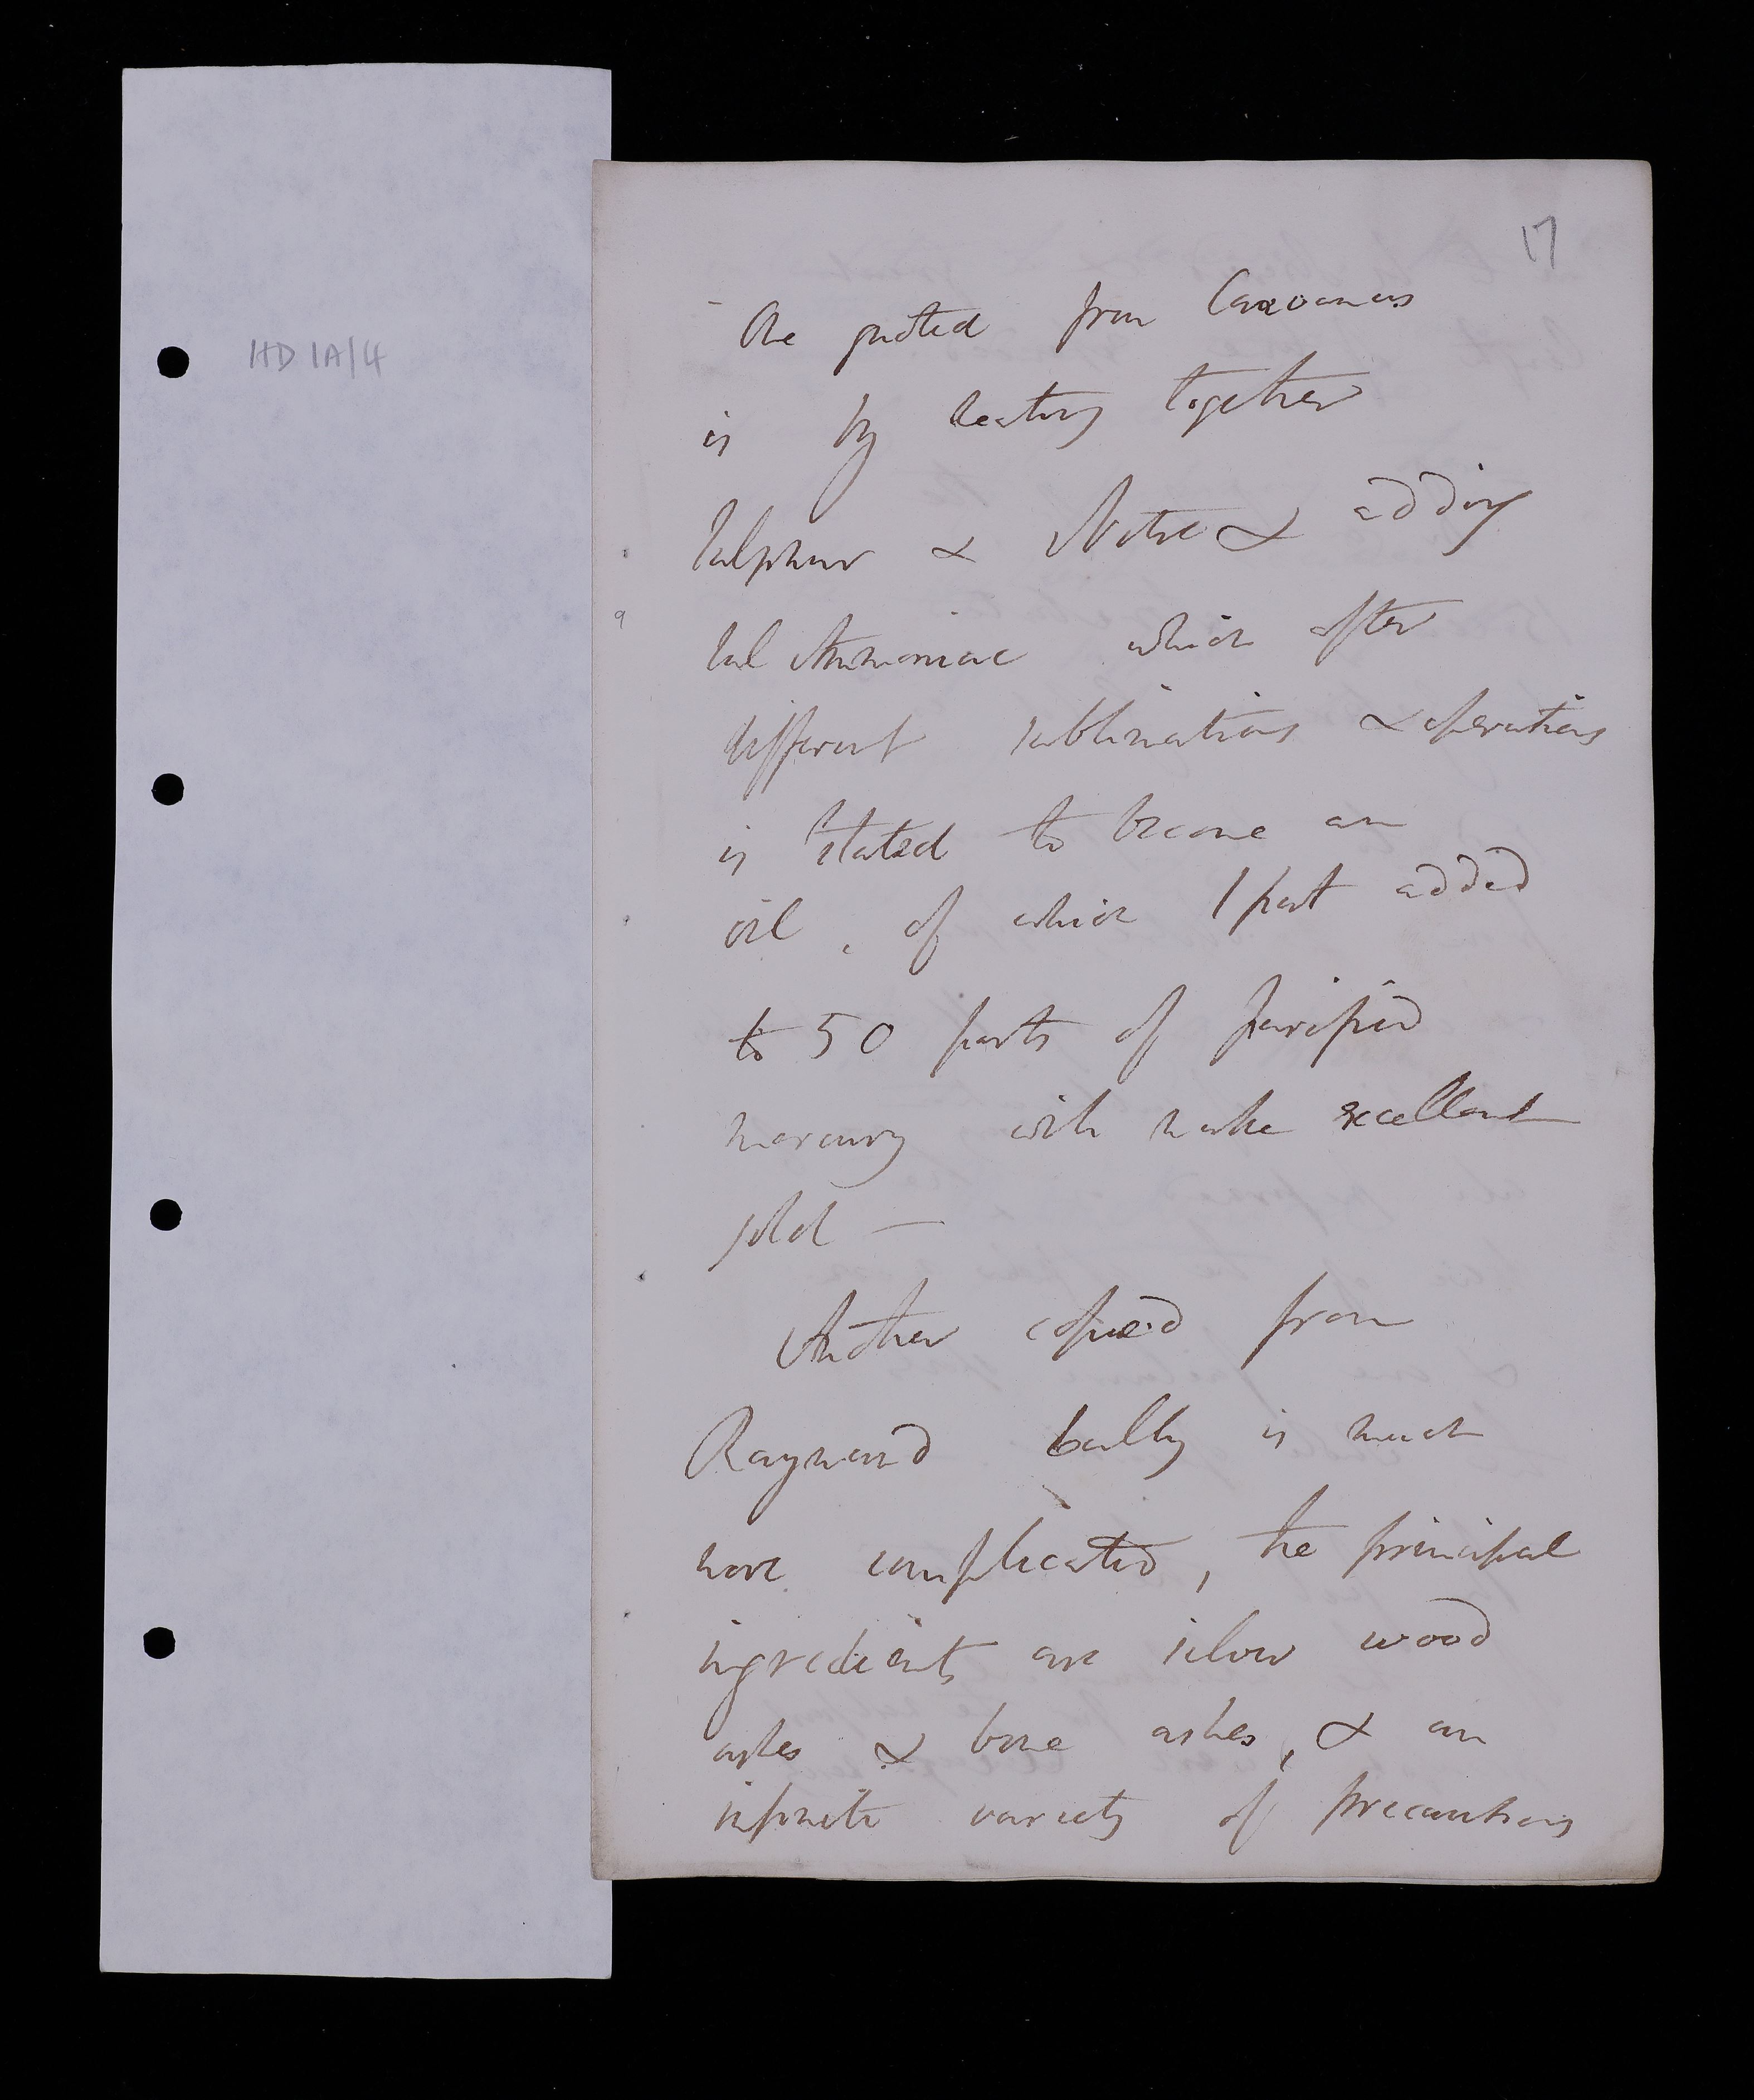 HD 1A/4
17
One quoted from
is by heating together
Sulphur & Nitre & adding
Sal Ammoniac which after
different sublimations & operations
is stated to become an
oil, of which 1 part added
to 50 parts of purified
mercury will make excellent
gold —
Another copied from
Raymond Lully is much
more complicated, the principal
ingredients are silver wood
ashes & bone ashes, & an
infinite variety of precautions